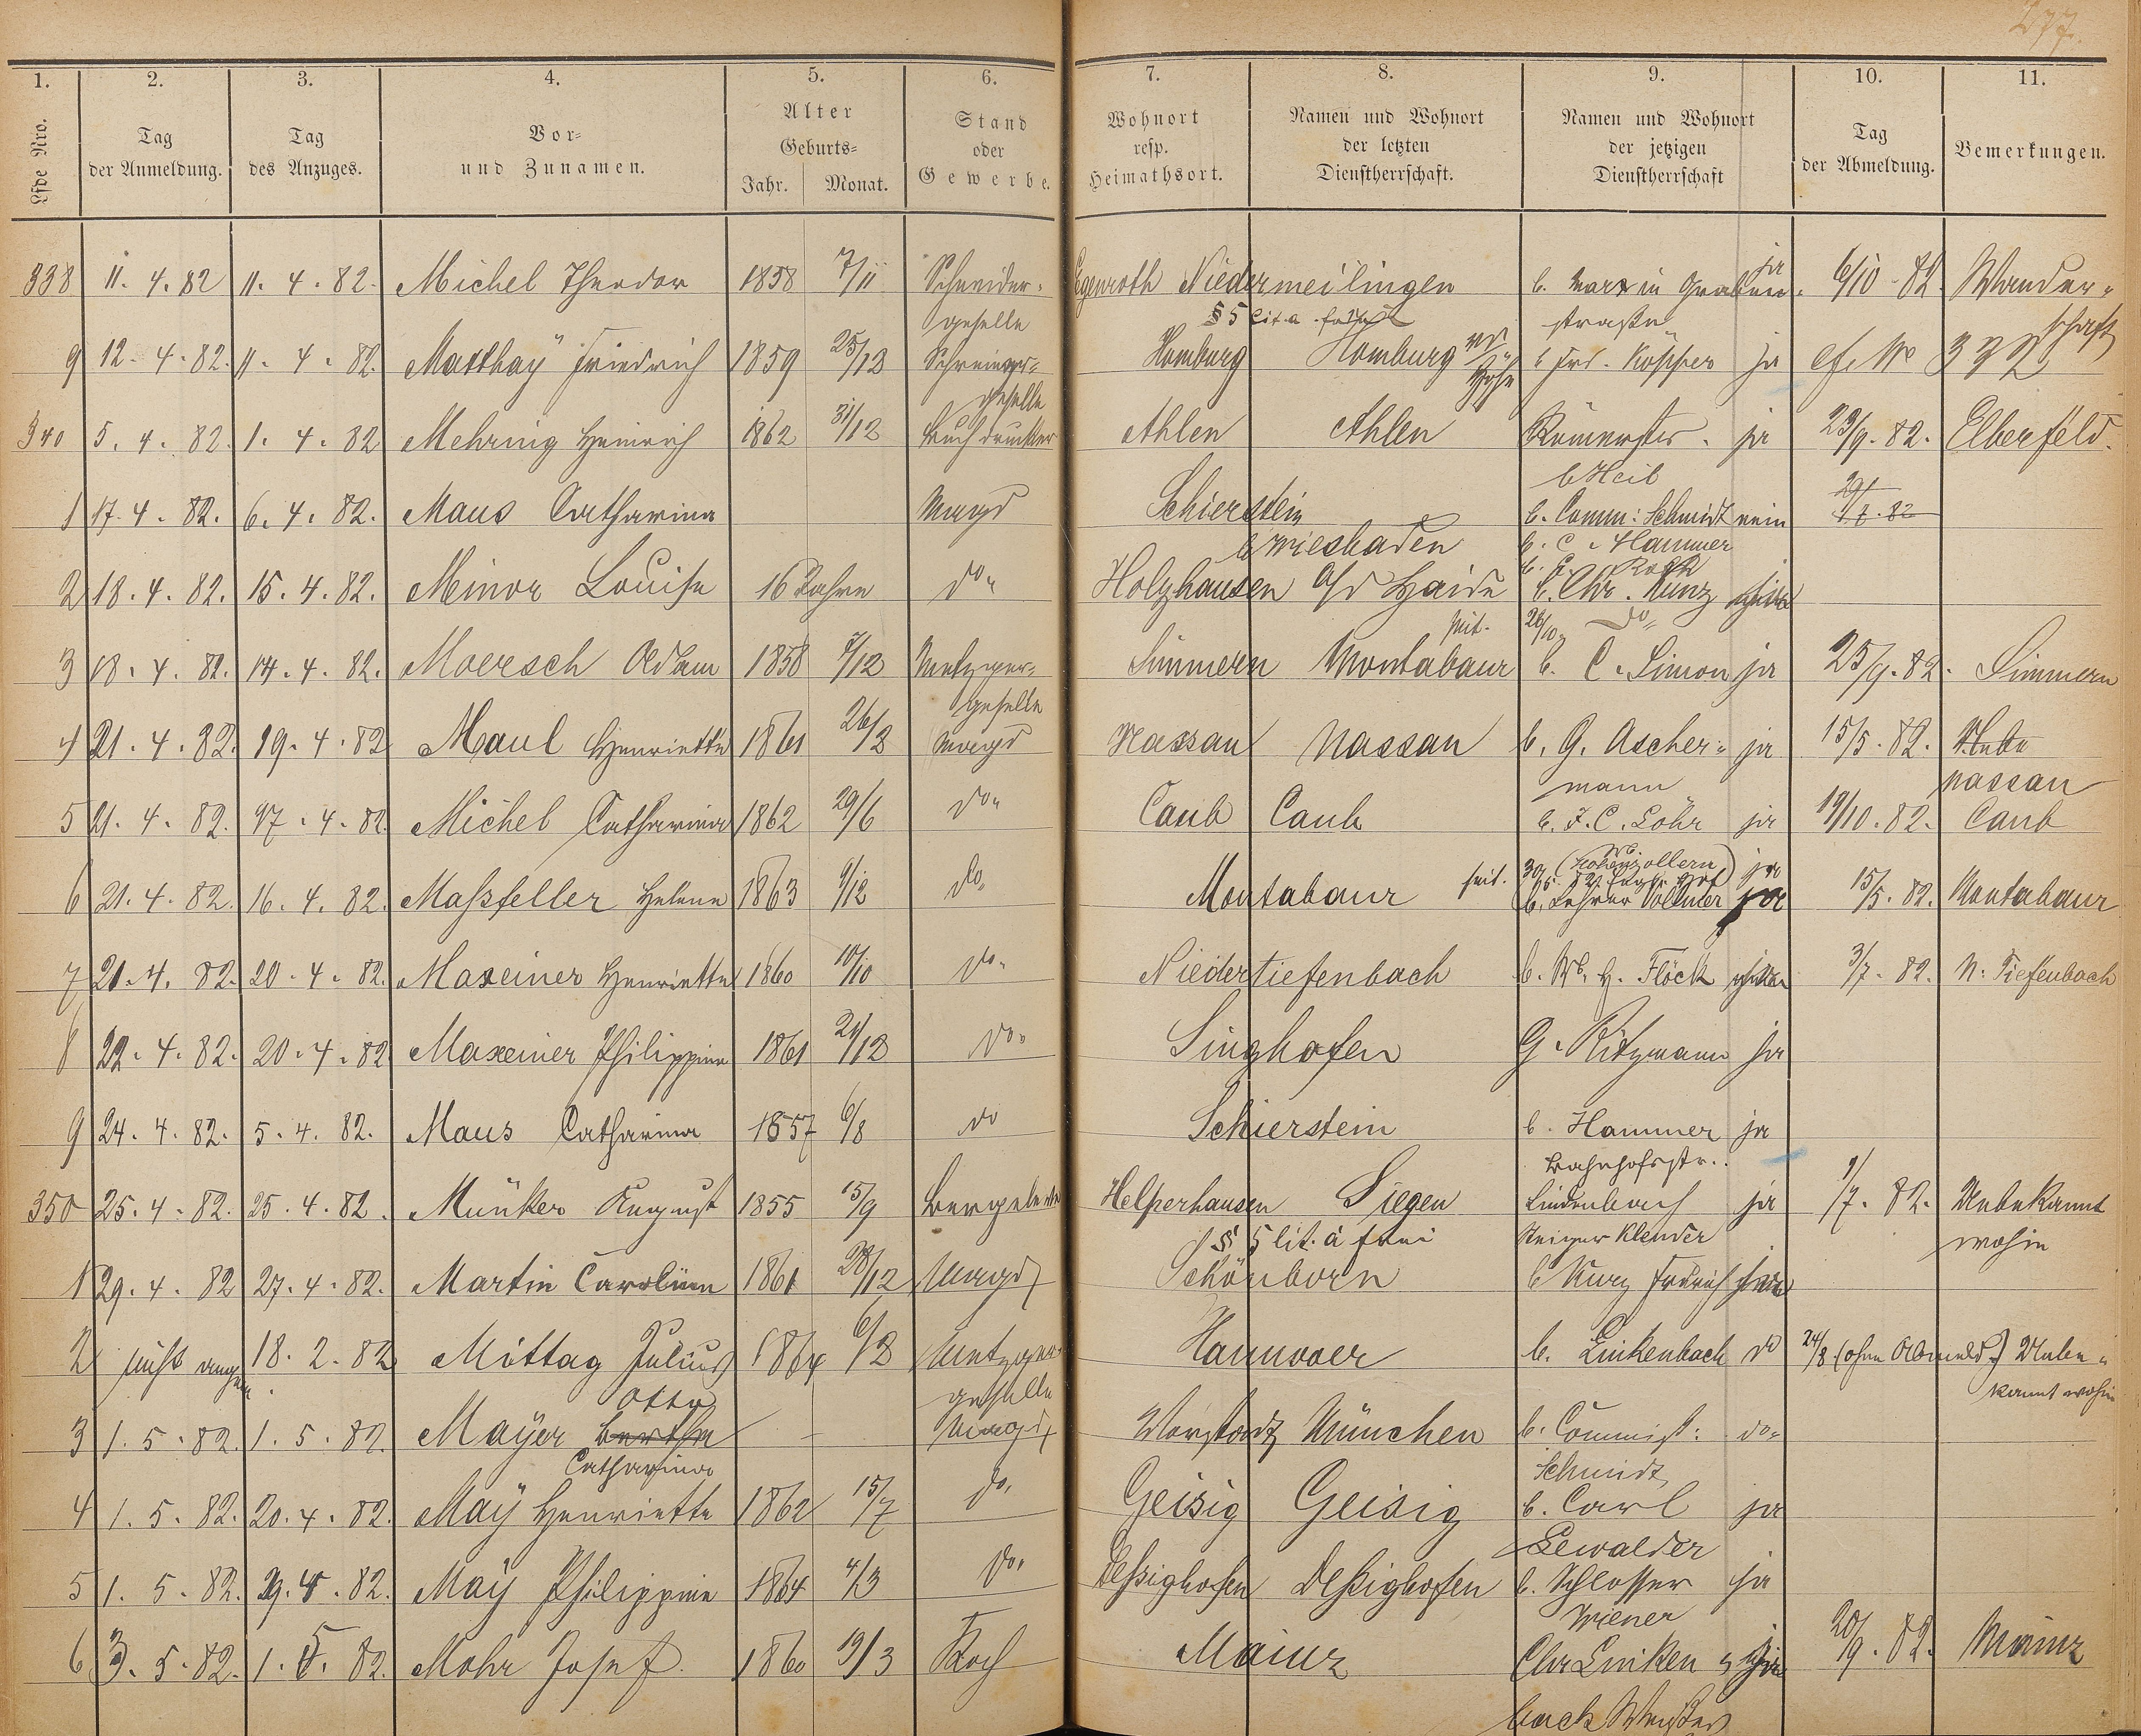 277.
1. 2. 3. 4. 5. 6. 7. 8. 9. 10. 11.
Lfde Nro.
Tag der Anmeldung.
Tag des Anzuges.
Vor= und Zunamen.
Alter
Geburts=
Jahr. Monat.
Stand oder Gewerbe.
Wohnort resp. Heimathsort.
Namen und Wohnort der letzten Dienstherrschaft.
Namen und Wohnort der jetzigen Dienstherrschaft
Tag der Abmeldung.
Bemerkungen.
338 11. 4. 82 11. 4. 82. Michel Theodor 1858 7/11 Schneider= Egenroth Niedermeilingen b. Marx in Graben= ja 6/10 82. Wander=
geselle § 5 lit. a straße schaft
9 12. 4. 82. 11. 4. 82. Matthay Friedrich 1859 25/12 Schreiner= Homburg Homburg vd Höhe b Frd. Köpper ja 332
geselle
340 5. 4. 82. 1. 4. 82 Mehring Heinrich 1862 31/12 Buchdrucker Ahlen Ahlen Römerstr. ja 23/9. 82. Elberfeld.
b Heil
1 17. 4. 82. 6. 4. 82. Maus Catharina Magd Schierstein b. Comm: Schmidt nein
b Wiesbaden b. C. Hammer
2 18. 4. 82. 15. 4. 82. Minor Louise 16 Jahre do" Holzhausen a/d Haide b. Chr. Kunz
seit. 26/10. do"
3 18. 4. 82. 14. 4. 82. Moersch Adam 1858 7/12 Metzger= Simmern Montabaur b. C. Simon ja 25/9. 82. Simmern
geselle
4 21. 4. 82. 19. 4. 82 Maul Henriette 1861 26/2 Magd Nassau Nassau b. G. Ascher= ja 15/5. 82.
mann Nassau
5 21. 4. 82. 17. 4. 82. Michel Catharina 1862 29/6 do" Caub Caub b. F. C. Löhr ja 19/10. 82. Caub
6 21. 4. 82. 16. 4. 82. Massfeller Helene 1863 9/12 do" Montabaur seit. 30/5 (Hohenzollern) ja
b. Lehrer Vollmer ja 15/5. 82. Montabaur
7 21. 4. 82. 20. 4. 82. Maxeiner Henriette 1860 10/10 do" Niedertiefenbach b. Wb. H. Flöck 3/7. 82. N. Tiefenbach
8 22. 4. 82. 20. 4. 82 Maxeiner Philippine 1861 21/12 do" Singhofen G. Ritzmann ja
9 24. 4. 82. 5. 4. 82. Maus Catharina 1857 6/8 do Schierstein b. Hammer ja
Bahnhofstr.
350 25. 4. 82. 25. 4. 82. Münker August 1855 15/9 Helperhausen Siegen Lindenbach ja 1/7. 82. Unbekannt
§ 5 lit. a frei Steiger Klender wohin
1 29. 4. 82 27. 4. 82. Martin Carolinen 1861 28/12 Magd Schönborn b Kurz Fridrich
2 nicht angem 18. 2. 82 Mittag Julius 1864 6/2 Metzger= Hannover b. Linkenbach do 24/8 (ohne Abmeld.) Unbe=
Otto geselle kannt wohin
3 1. 5. 82. 1. 5. 82. Mayer Bertha — — Magd Vorstadt München b. Commiss: do"
Catharina Schmidt
4 1. 5. 82. 20. 4. 82. May Henriette 1862 15/7 do" Geisig Geisig b. Carl ja
Lewalder
5 1. 5. 82. 29. 4. 82. May Philippine 1864 4/3 do" Dessighofen Dessighofen b. Schlosser ja
Wiener
6 3. 5. 82. 1. 5. 82. Mohr Josef. 1860 19/3 Koch Mainz Chr Linken= ja 20/9. 82. Mainz
bach